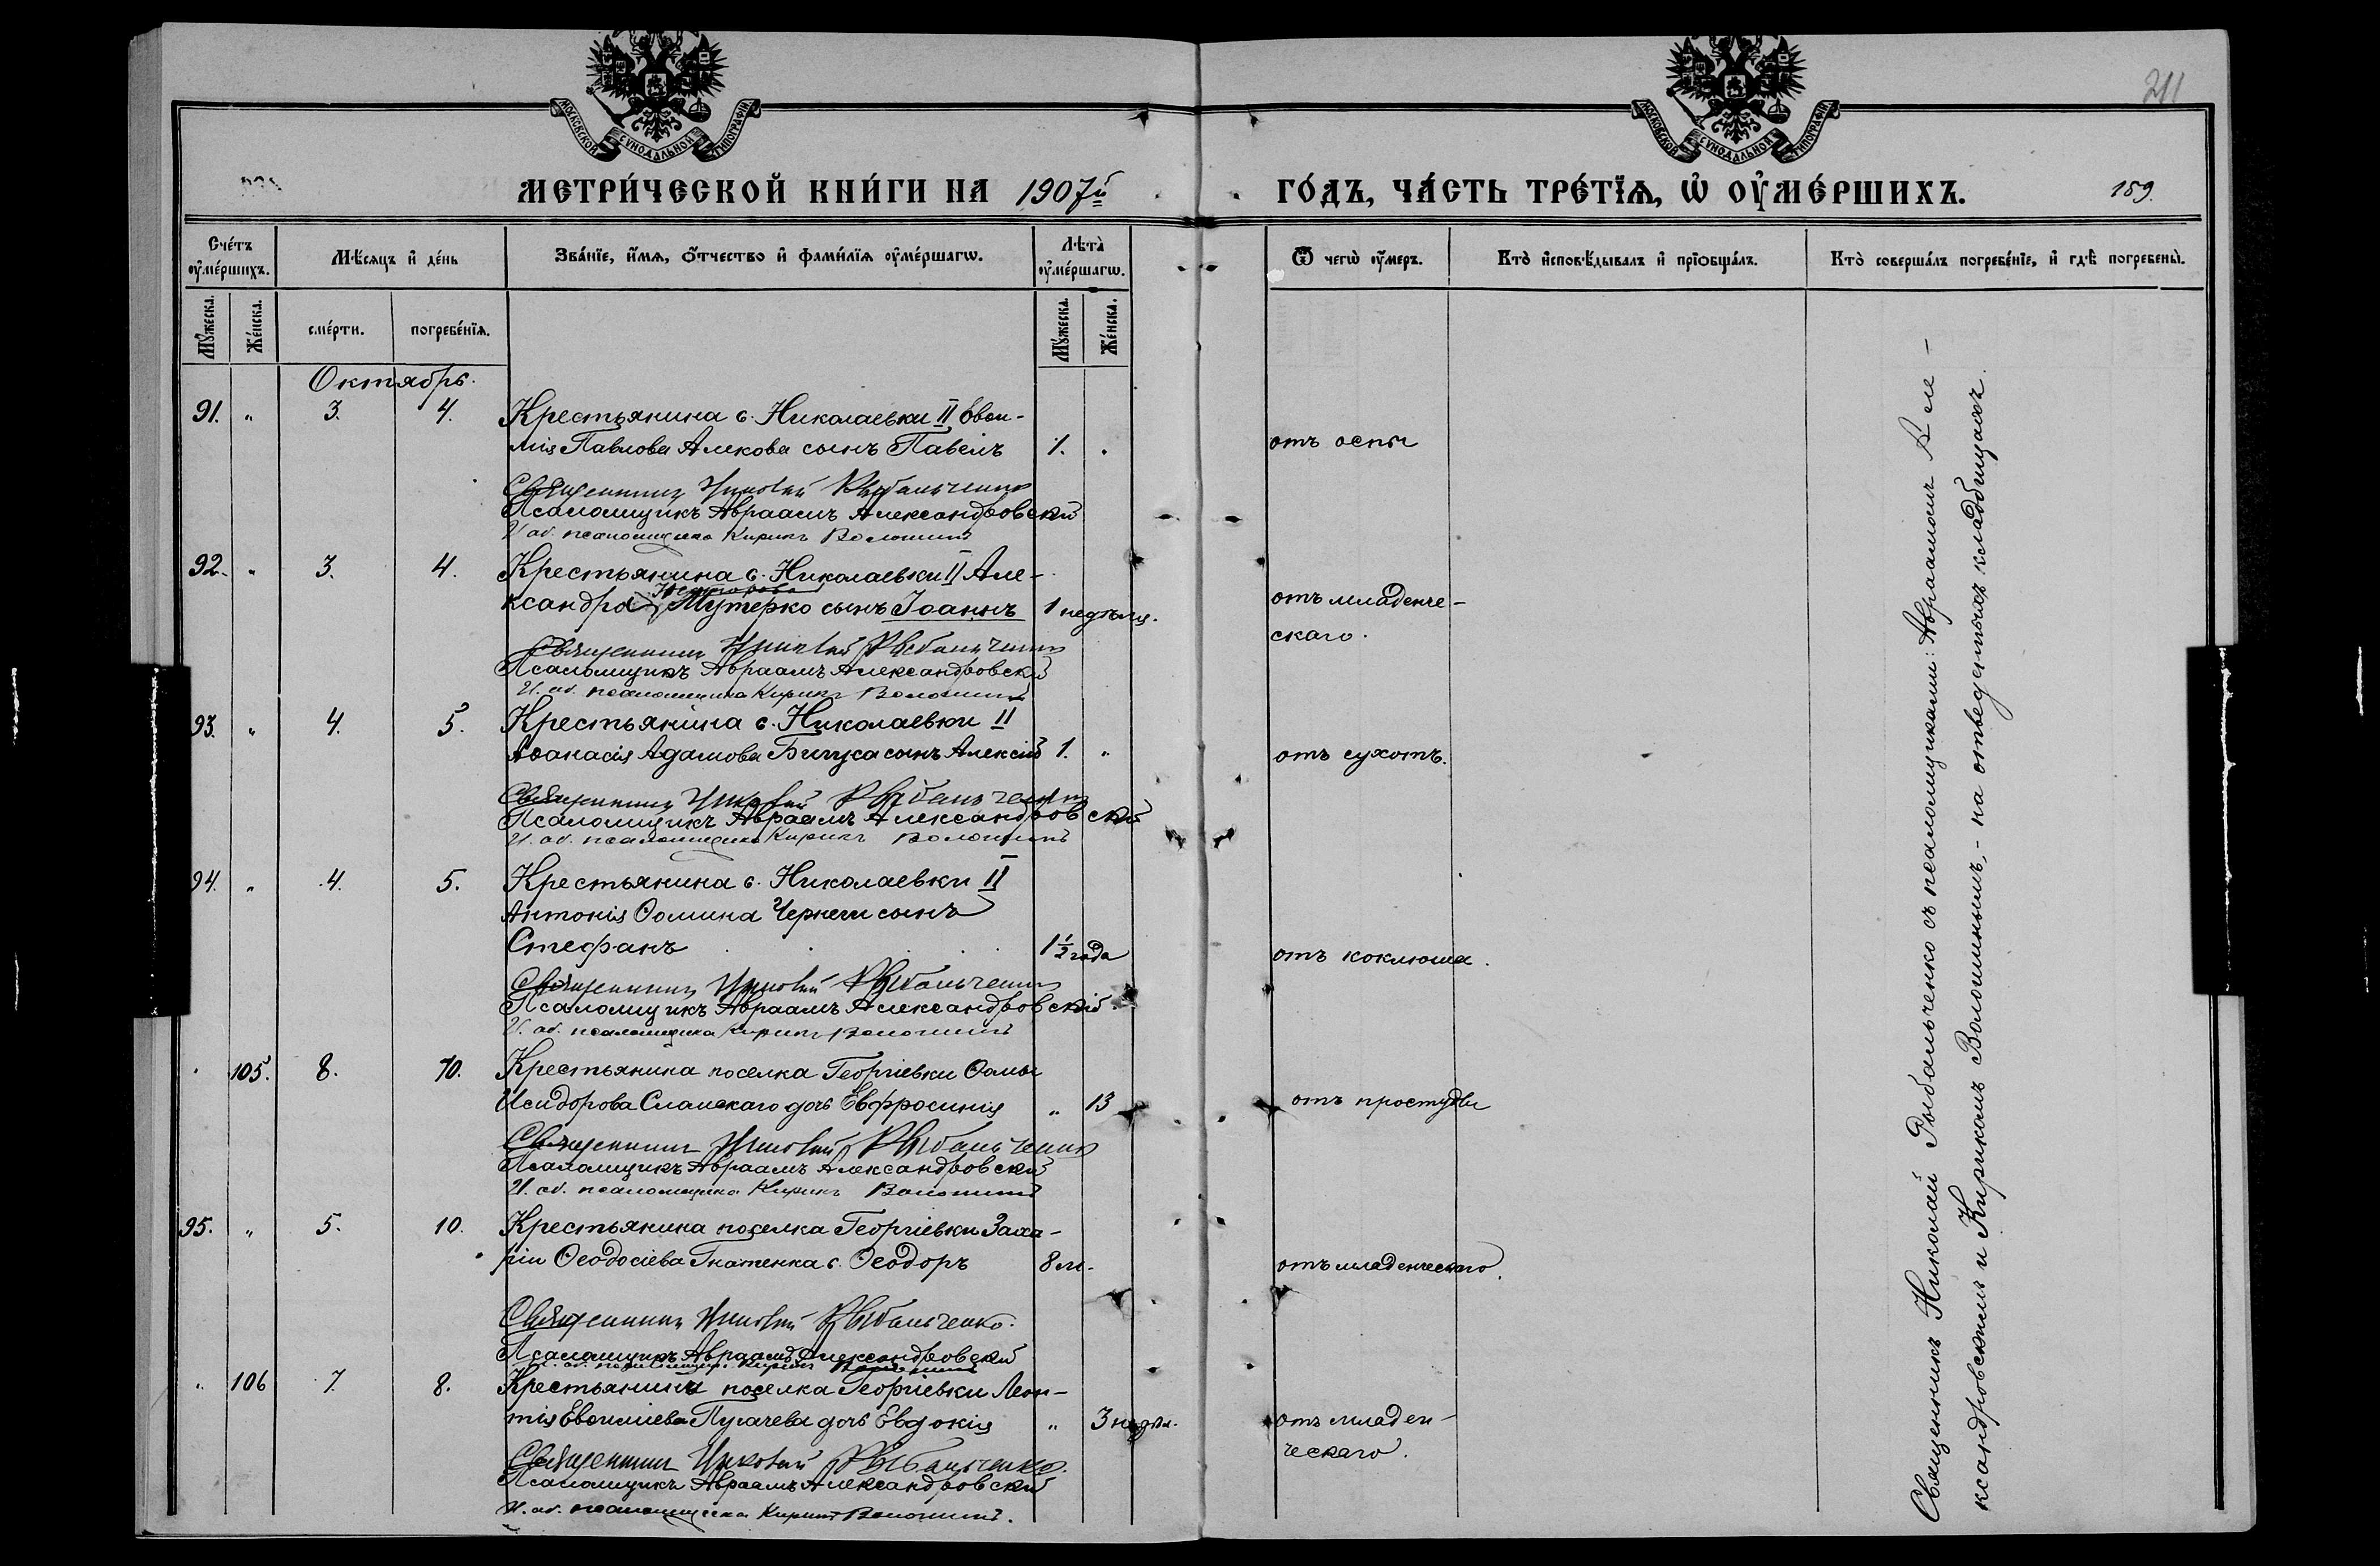 МОСКОВСКОЙ СУНОДАЛЬНОЙ ТИПОГРАФІИ
МОСКОВСКОЙ СУНОДАЛЬНОЙ ТИПОГРАФІИ
211
МЕТРИ́ЧЕСКОЙ КНИ́ГИ НА 1907й
ГО́ДЪ, ЧА́СТЬ ТРЕ́ТЇѦ, Ѡ҆ ОУ҆МЕ́РШИХЪ.
159.
Сче́тъ оу҆ме́ршихъ.
Мѣ́сяцъ и҆ де́нь
Зва́нїе, и҆́мѧ, ѻ҆́тчество и҆ фами́лїѧ оу҆ме́ршагѡ.
Лѣ́та̀ оу҆ме́ршагѡ.
Ѿ чегѡ̀ оу҆́меръ.
Кто̀ и҆сповѣ́дывалъ и҆ прїѡбща́лъ.
Кто̀ соверша́лъ погребе́нїе, и҆ гдѣ̀ погребены̀.
Мꙋ́жеска. Же́нска. сме́рти. погребе́нїѧ. Мꙋ́жеска. Же́нска.
Октябрь.
91. " 3. 4. Крестьянина с. Николаевки II Евѳи-
мія Павлова Алекова сынъ Павелъ 1. " отъ оспы
Священникъ Николай Рыбальченко
Псаломщикъ Авраамъ Александровскій
И. об. псаломщика Кирикъ Волошинъ
92. " 3. 4. Крестьянина с. Николаевки II Але-
ксандра Мутерко сынъ Іоаннъ 1 недѣля. отъ младенче-
скаго.
Священникъ Николай Рыбальченко
Псаломщикъ Авраамъ Александровскій
И. об. псаломщика Кирикъ Волошинъ
93. " 4. 5. Крестьянина с. Николаевки II
Аѳанасія Адамова Бичука сынъ Алексій 1. " отъ сухотъ.
Священникъ Николай Рыбальченко
Псаломщикъ Авраамъ Александровскій
И. об. псаломщика Кирикъ Волошинъ
94. " 4. 5. Крестьянина с. Николаевки II
Антонія Ѳомина Чернеги сынъ
Стефанъ 1½ года отъ коклюша.
Священникъ Николай Рыбальченко
Псаломщикъ Авраамъ Александровскій
И. об. псаломщика Кирикъ Волошинъ
" 105. 8. 10. Крестьянина поселка Георгіевки Ѳомы
Исидорова Сламскаго дочь Евфросинія " 13 отъ простуды
Священникъ Николай Рыбальченко
Псаломщикъ Авраамъ Александровскій
И. об. псаломщика Кирикъ Волошинъ
95. " 5. 10. Крестьянина поселка Георгіевки Заха-
ріи Ѳеодосіева Гнатенка с. Ѳеодоръ 8 м. отъ младенческаго.
Священникъ Николай Рыбальченко.
Псаломщикъ Авраамъ Александровскій
И. об. псаломщика Кирикъ Волошинъ
" 106 7. 8. Крестьянина поселка Георгіевки Леон-
тія Евѳиміева Пугачева дочь Евдокія " 3 недѣл. отъ младен-
ческаго.
Священникъ Николай Рыбальченко.
Псаломщикъ Авраамъ Александровскій
И. об. псаломщика Кирикъ Волошинъ.
Священникъ Николай Рыбальченко съ псаломщиками: Авраамомъ Але-
ксандровскимъ и Кирикомъ Волошинымъ, - на отведенныхъ кладбищахъ.